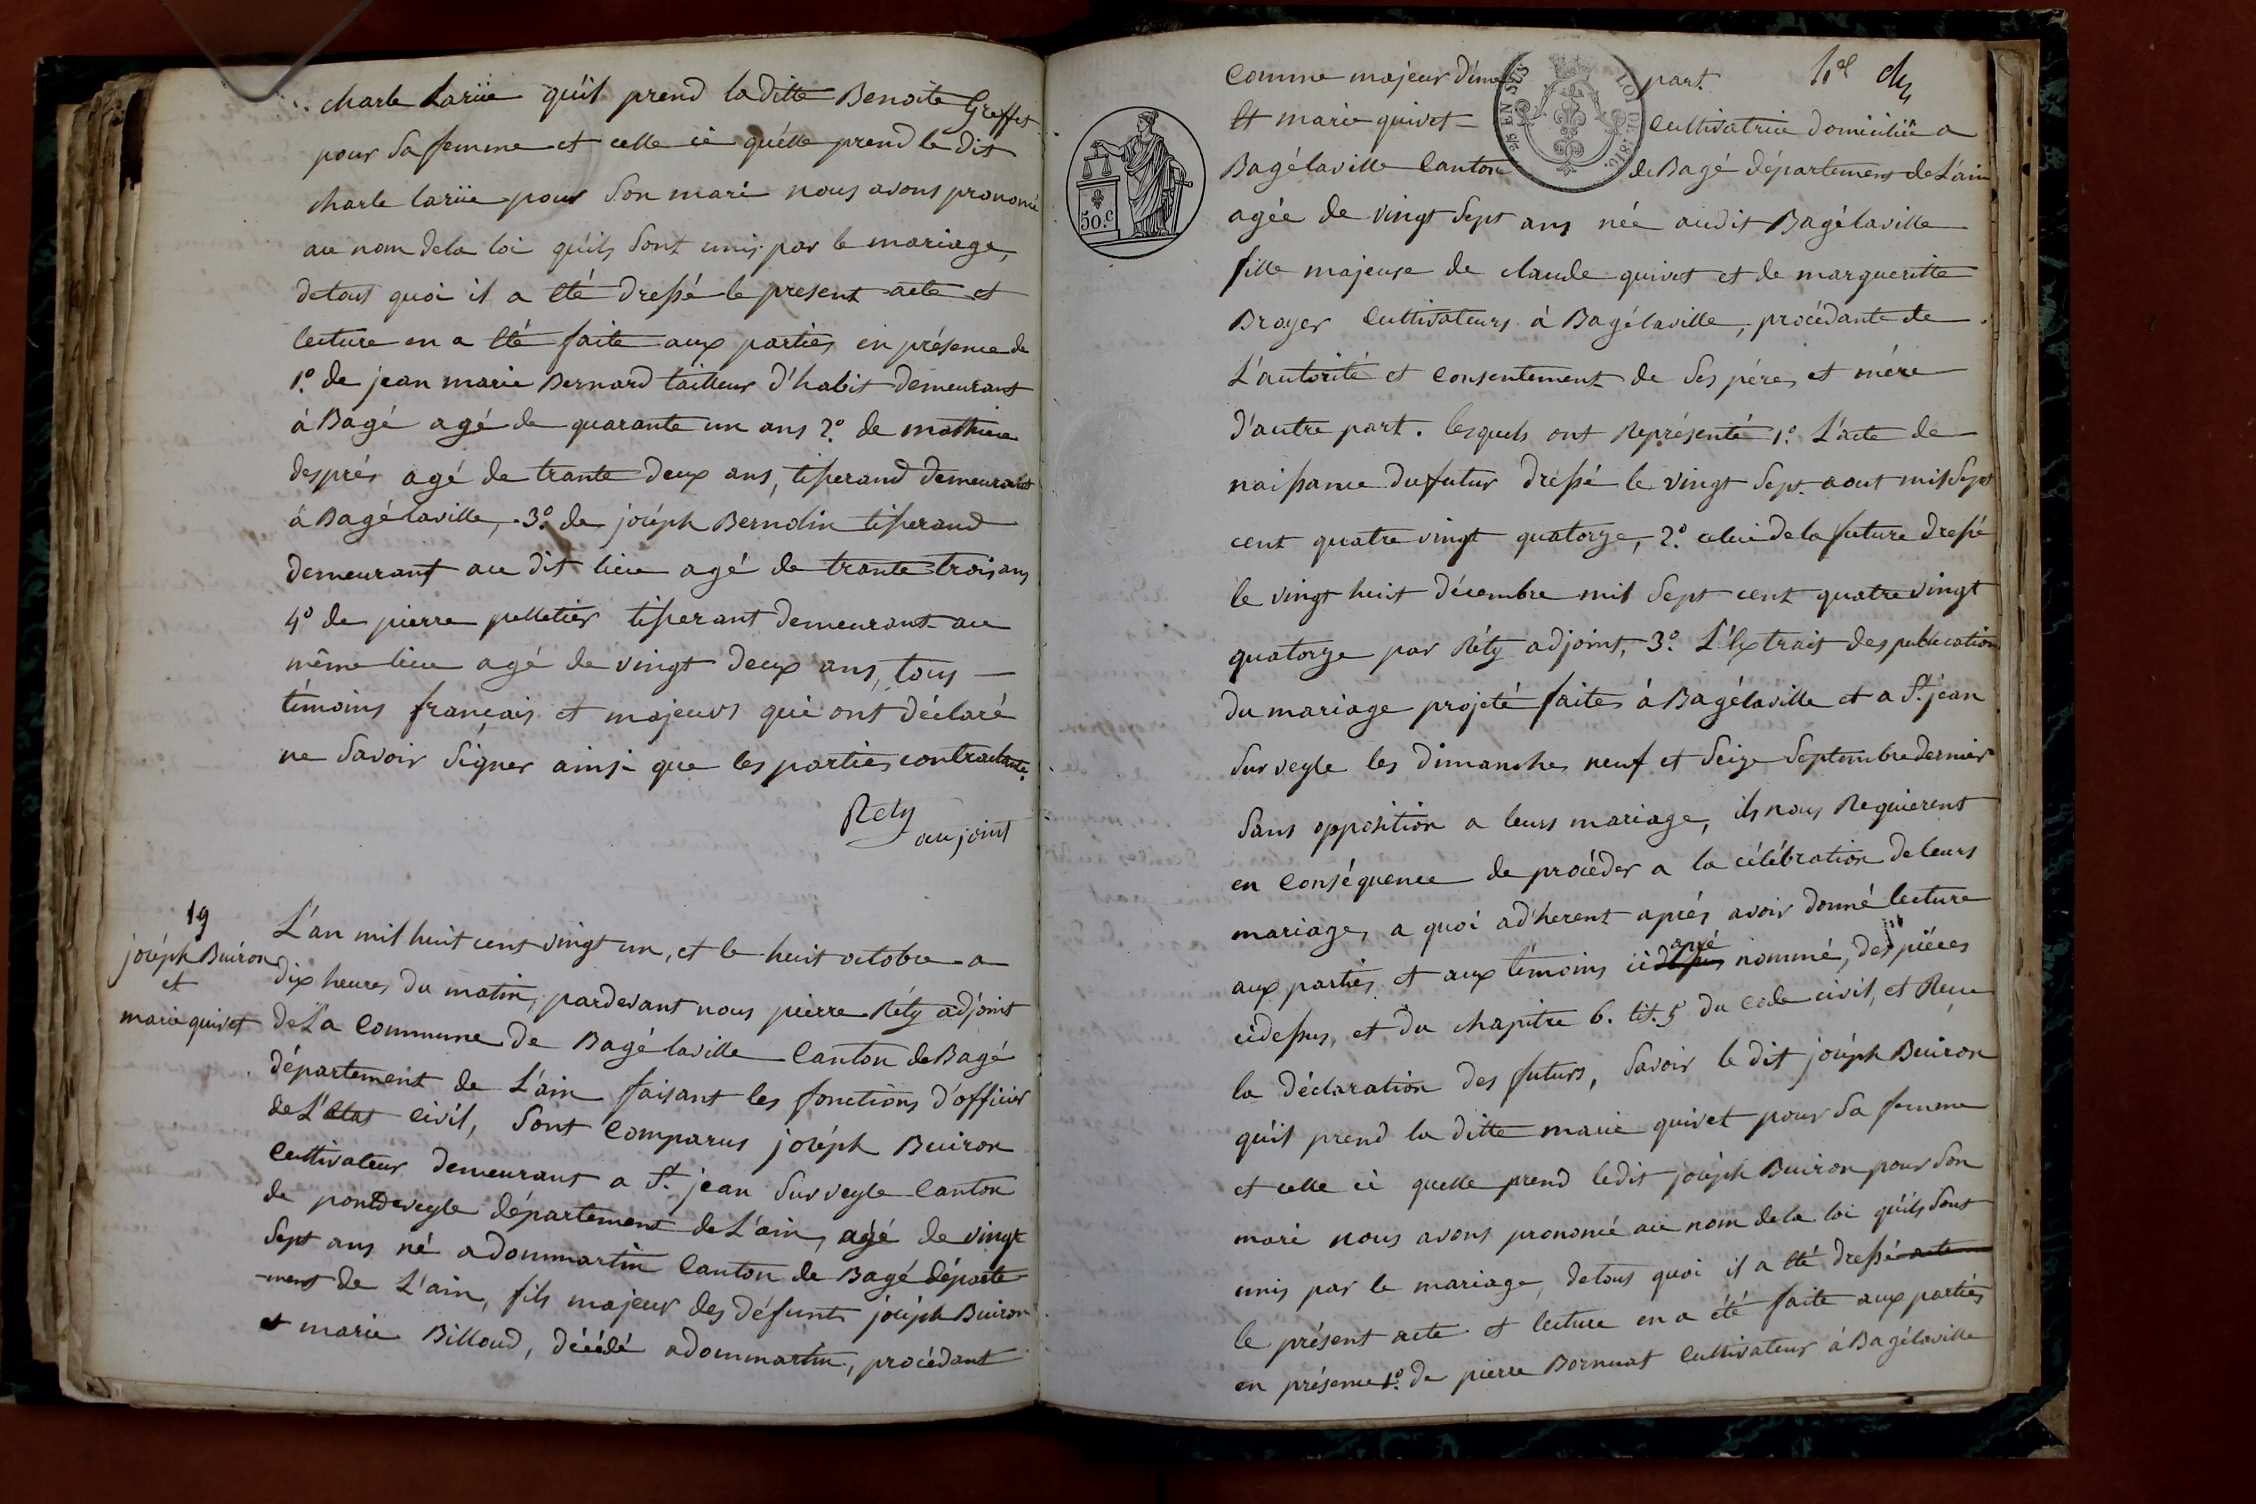 charle Lariie qu'il prend la ditte Benoite Greffet
pour sa femme et celle ci qu'elle prend le dit
charle lariie pour son mari nous avons prononcé
au nom de la loi qu'ils sont unis par le mariage,
de tout quoi il a été dressé le present acte et
lecture en a été faite aux parties en présence de
1.º de jean marie Bernard tailleur d'habit demeurant
à Bagé agé de quarante un ans 2.º de mathieu
després agé de trante deux ans, tisserand demeurant
à Bagélaville, 3.º de joséph Bernolin tisserand
demeurant au dit lieu agé de trante trois ans
4º de pierre pelletier tisserant demeurant au
même lieu agé de vingt deux ans, tous
témoins français et majeurs qui ont déclaré
ne savoir signer ainsi que les parties contractante.
Rety
aujoint
19
joséph Buiron
et
marie quivet
L'an mil huit cent vingt un, et le huit octobre a
dix heures du matin, pardevant nous pierre Réty adjoint
de La Commune de Bagélaville Canton de Bagé
département de L'ain faisant les fonctions d'officier
de L'état civil, sont comparus joséph Buiron
cultivateur demeurant a St. jean sur veyle Canton
de pondeveyle département de L'ain, agé de vingt
sept ans né a dommartin Canton de Bagé départe
-ment de L'ain, fils majeur des défunts joséph Buiron
et marie Billoud, décédé a dommartin, procédant
comme majeur d'une part.
Et marie quivet cultivatrice domiciliée a
Bagélaville Canton de Bagé département de L'ain
agée de vingt sept ans née audit Bagélaville
fille majeure de claude quivet et de margueritte
Broyer cultivateurs à Bagélaville, procédante de
L'autorité et consentement de ses pére et mére
d'autre part. lesquels ont représenté 1.º L'acte de
naissance du futur dréssé le vingt sept aout mil sept
cent quatre vingt quatorze, 2.º celui de la future dressé
le vingt huit décembre mil sept cent quatre vingt
quatorze par Réty adjoint, 3.º L'extrait des publication
du mariage projeté faites à Bagélaville et a St. jean
sur veyle les dimanche neuf et seize septembre dernier
sans opposition a leurs mariage, ils nous requierent
en conséquence de procéder a la célébration de leurs
mariage, a quoi adhérent aprés avoir donné lecture
aux parties et aux témoins ci apré nommé, des piéces
cidessus, et du chapitre 6. tit. 5 du code civil, et Recu
la déclaration des futurs, savoir le dit joséph Buiron
qu'il prend la ditte marie quivet pour sa femme
et celle ci quelle prend ledit joséph Buiron pour son
mari nous avons prononcé au nom de la loi qu'ils sont
unis par le mariage, de tous quoi il a été dressé acte
le présent acte et lecture en a été faite aux parties
en présence 1.º de pierre Bornuat cultivateur à Bagélaville
50.c
EN SUS
LOI DE 1816.